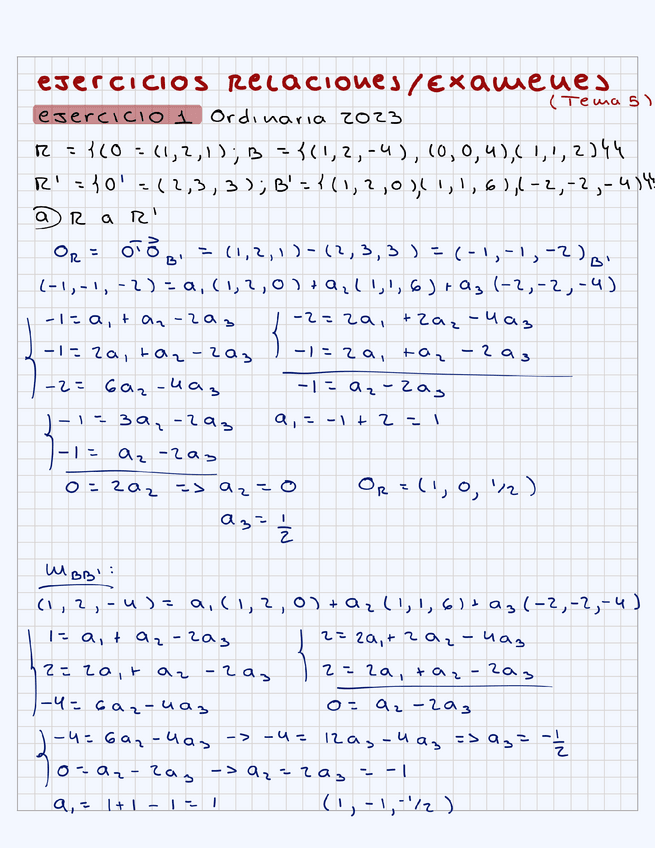 ejercicios Relaciones/Examenes
(Tema 5)
ejercicio 1 Ordinaria 2023
R = {(O = (1,2,1); B = {(1,2,-4), (0,0,4),(1,1,2)}}
R' = {O' = (2,3,3); B' = {(1,2,0)(1,1,6),(-2,-2,-4)}}
a) R a R'
O_R = O'O_B' = (1,2,1)-(2,3,3) = (-1,-1,-2)_B'
(-1,-1,-2) = a₁(1,2,0)+a₂(1,1,6)+a₃(-2,-2,-4)
-1 = a₁ + a₂ - 2a₃
-1 = 2a₁ + a₂ - 2a₃
-2 = 6a₂ - 4a₃
-2 = 2a₁ + 2a₂ - 4a₃
-1 = 2a₁ + a₂ - 2a₃
-1 = a₂ - 2a₃
-1 = 3a₂ - 2a₃
-1 = a₂ - 2a₃
a₁ = -1 + 2 = 1
0 = 2a₂ => a₂ = 0
O_R = (1, 0, 1/2)
a₃ = 1/2
M_BB':
(1, 2, -4) = a₁(1,2,0)+a₂(1,1,6)+a₃(-2,-2,-4)
1 = a₁ + a₂ - 2a₃
2 = 2a₁ + a₂ - 2a₃
-4 = 6a₂ - 4a₃
2 = 2a₁ + 2a₂ - 4a₃
2 = 2a₁ + a₂ - 2a₃
0 = a₂ - 2a₃
-4 = 6a₂ - 4a₃ -> -4 = 12a₃ - 4a₃ => a₃ = -1/2
0 = a₂ - 2a₃ -> a₂ = 2a₃ = -1
a₁ = 1+1-1 = 1 (1,-1,-1/2)